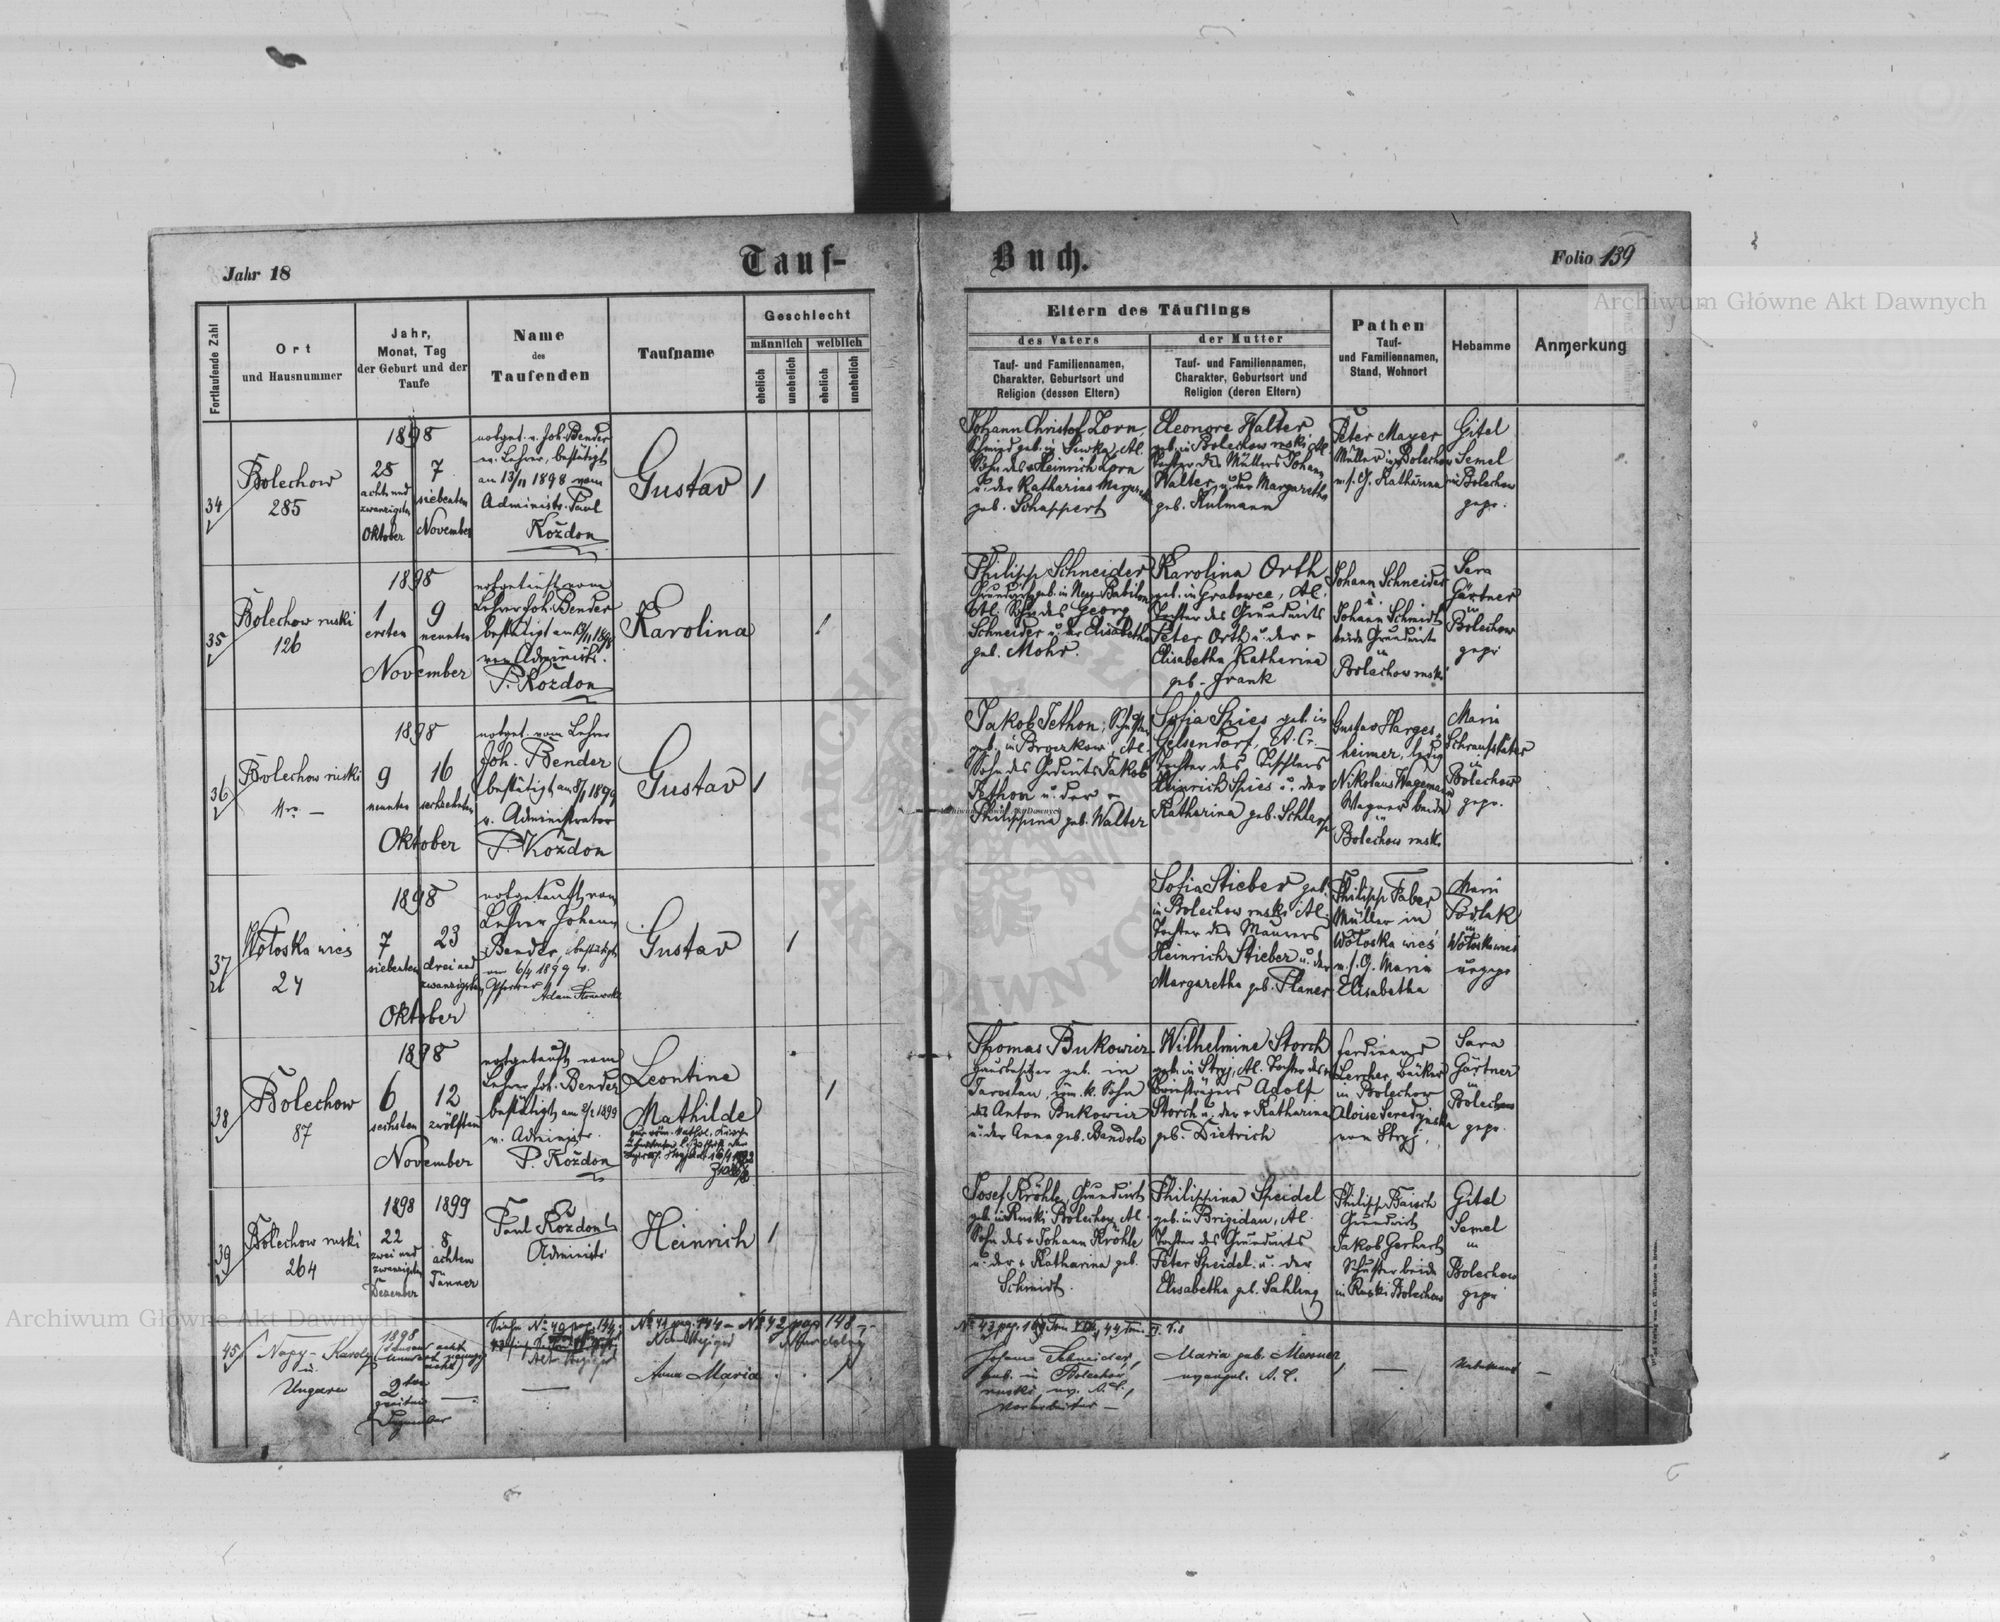 Jahr 18
Tauf-
Buch.
Folio 139
Archiwum Główne Akt Dawnych
Fortlaufende Zahl
Ort
und Hausnummer
Jahr,
Monat, Tag
der Geburt und der
Taufe
Name
des
Taufenden
Taufname
Geschlecht
männlich
weiblich
ehelich
unehelich
ehelich
unehelich
Eltern des Täuflings
des Vaters
Tauf- und Familiennamen,
Charakter, Geburtsort und
Religion (dessen Eltern)
der Mutter
Tauf- und Familiennamen,
Charakter, Geburtsort und
Religion (deren Eltern)
Pathen
Tauf-
und Familiennamen,
Stand, Wohnort
Hebamme
Anmerkung
34
Bolechow
285
1898
28
acht und
zwanzigsten
Oktober
7
siebenten
November
notget. v. Joh. Bender
ev. Lehrer, bestätigt
am 13/11 1898 vom
Administr. Paul
Koždon
Gustav
1
Johann Christof Zorn,
Schmied geb. in Siwka, Al.
Sohn des + Heinrich Zorn
u. der Katharina Margareth
geb. Schappert
Eleonore Walter
geb. in Bolechow ruski Al
Tochter des Müllers Johann
Walter, u. der Margaretha
geb. Kulmann
Peter Mayer
Müller in Bolechow
m. s. G. Katharina
Gitel
Semel
in Bolechow
gepr.
35
Bolechow ruski
126
1898
1
ersten
9
neunten
November
notgetauft vom
Lehrer Joh. Bender
bestätigt am 13/11 1898
von Administr.
P. Kozdon
Karolina
1
Philipp Schneider
Grundwirt geb. in Neu Babilon
Al. Sohn des Georg
Schneider u. der Elisabetha
geb. Mohr.
Karolina Orth
geb. in Grabowce, Al.
Tochter des Grundwirts
Peter Orth u. der +
Elisabetha Katharina
geb. Frank
Johann Schneider
u.
Johann Schmidt
beide Grundwirte
in
Bolechow ruski
Sara
Gärtner
in
Bolechow
gepr
36
Bolechow ruski
Nro —
1898
9
neunten
16
sechzehnten
Oktober
notget. vom Lehrer
Joh. Bender
bestätigt am 8/1 1899
v. Administrator
P. Koždon
Gustav
1
Jakob Jethon, Schuster
geb. in Al.
Sohn des Jakob
Jethon u. der +
Philippina geb. Walter
Sofia Spies geb. in
Gelsendorf, A. C.
Tochter des Tischlers
Heinrich Spies u. der
Katharina geb. Schlapp
Gustav Harges-
heimer, ledig
Nikolaus Wagemann
Wagner beide
in
Bolechow ruski
Marie
Schraufstäter
in
Bolechow
gepr.
37
Wołoska wieś
24
1898
7
siebenten
23
drei und
zwanzigsten
Oktober
notgetauft vom
Lehrer Johann
Bender, bestätigt
am 6/4 1899 v.
Pfarrer
Adam
Gustav
1
Sofia Stieber geb.
in Bolechow ruski Al.
Tochter des Maurers
Heinrich Stieber u. der
Margaretha geb. Planer
Philipp Faber
Müller in
Wołoska wieś
m. s. G. Maria
Elisabetha
Marie
Podlak
in
Wołoska wieś
ungepr
38
Bolechow
87
1898
6
sechsten
12
zwölften
November
notgetauft vom
Lehrer Joh. Bender
bestätigt am 2/2 1899
v. Administr.
P. Koždon
Leontine
Mathilde
1
Thomas Bukowicz
Hausbesitzer geb. in
Jaroslau, röm. k. Sohn
des Anton Bukowicz
u. der Anna geb. Bandola
Wilhelmine Storch
geb. in Stryj, Al. Tochter des +
Briefträgers Adolf
Storch u. der + Katharina
geb. Dietrich
Ferdinand
Lercher, Bäcker
in Bolechow
Aloise Seredyńska
von Stryj,
Sara
Gärtner
in
Bolechow
gepr.
39
Bolechow ruski
264
1898
22
zwei und
zwanzigsten
Dezember
1899
8
achten
Jänner
Paul Kozdon
Administr
Heinrich
1
Josef Kröhle, Grundwirt
geb. in Ruski Bolechow, Al.
Sohn des + Johann Kröhle
u. der + Katharina geb.
Schmidt.
Philippina Speidel
geb. in Brigidau, Al.
Tochter des Grundwirts
Peter Speidel u. der
Elisabetha geb. Sahling
Philipp Baisch
Grundwirt
Jakob Gerhart
Schuster beide
in Ruski Bolechow
Gitel
Semel
in
Bolechow
gepr
45
Nagy-Karoly
in
Ungarn
1898
2ten
zweiten
Siehe No 40 pag. 144
No 41 pag. 144 – No 42 pag 148
Anna Maria
1
Johann Schneider,
geb. in Bolechów
ruski, ev. A. C.,
Vorarbeiter —
Maria geb. Messner
evangel. A. C.
—
Unbekannt
—
Archiwum Główne Akt Dawnych